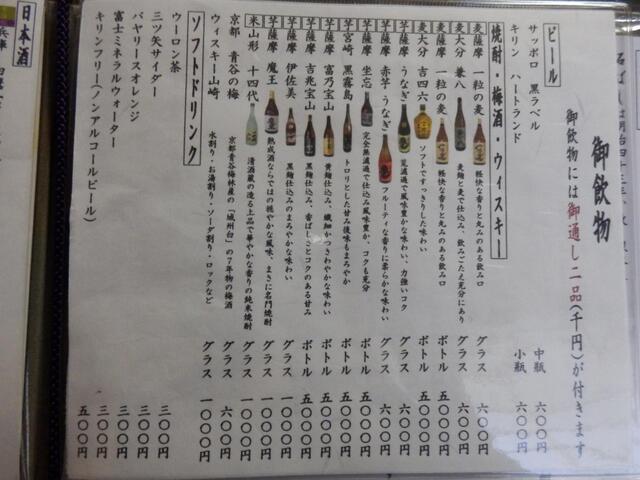 御飲物
御飲物には御通し二品(千円)が付きます
ビール
サッポロ 黒ラベル 中瓶 六〇〇円
キリン ハートランド 小瓶 六〇〇円
焼酎・梅酒・ウィスキー
麦 薩摩 一粒の麦 軽快な香りと丸みのある飲み口 グラス 六〇〇円
麦 大分 兼八 麦麹と麦で仕込み、飲みごたえ充分にあり グラス 六〇〇円
麦 薩摩 一粒の麦 軽快な香りと丸みのある飲み口 ボトル 五〇〇〇円
麦 大分 吉四六 ソフトですっきりした味わい ボトル 五〇〇〇円
芋 薩摩 うなぎ 荒濾過で風味豊かな味わい、力強いコク グラス 六〇〇円
芋 薩摩 赤芋 うなぎ フルーティな香りに柔らかな味わい グラス 六〇〇円
芋 薩摩 坐忘 完全無濾過で仕込み風味豊か、コクも充分 ボトル 五〇〇〇円
芋 宮崎 黒霧島 トロリとした甘み後味もまろやか ボトル 五〇〇〇円
芋 薩摩 富乃宝山 黄麹仕込み、繊細かつさわやかな味わい ボトル 五〇〇〇円
芋 薩摩 吉兆宝山 黒麹仕込み、香ばしさとコクのある甘み ボトル 五〇〇〇円
芋 薩摩 伊佐美 黒麹仕込みのまろやかな味わい グラス 一〇〇〇円
芋 薩摩 魔王 熟成酒ならではの穏やかな風味、まさに名門焼酎 グラス 一〇〇〇円
米 山形 十四代 清酒蔵の造る上品で華やかな香りの純米焼酎 グラス 一〇〇〇円
京都 青谷の梅 京都青谷梅林産の「城州白」の7年物の梅酒 グラス 六〇〇円
ウィスキー山崎 水割り・お湯割り・ソーダ割り・ロックなど グラス 一〇〇〇円
ソフトドリンク
ウーロン茶 三〇〇円
三ツ矢サイダー 三〇〇円
バヤリースオレンジ 三〇〇円
富士ミネラルウォーター 三〇〇円
キリンフリー(ノンアルコールビール) 五〇〇円
日本酒
兵庫